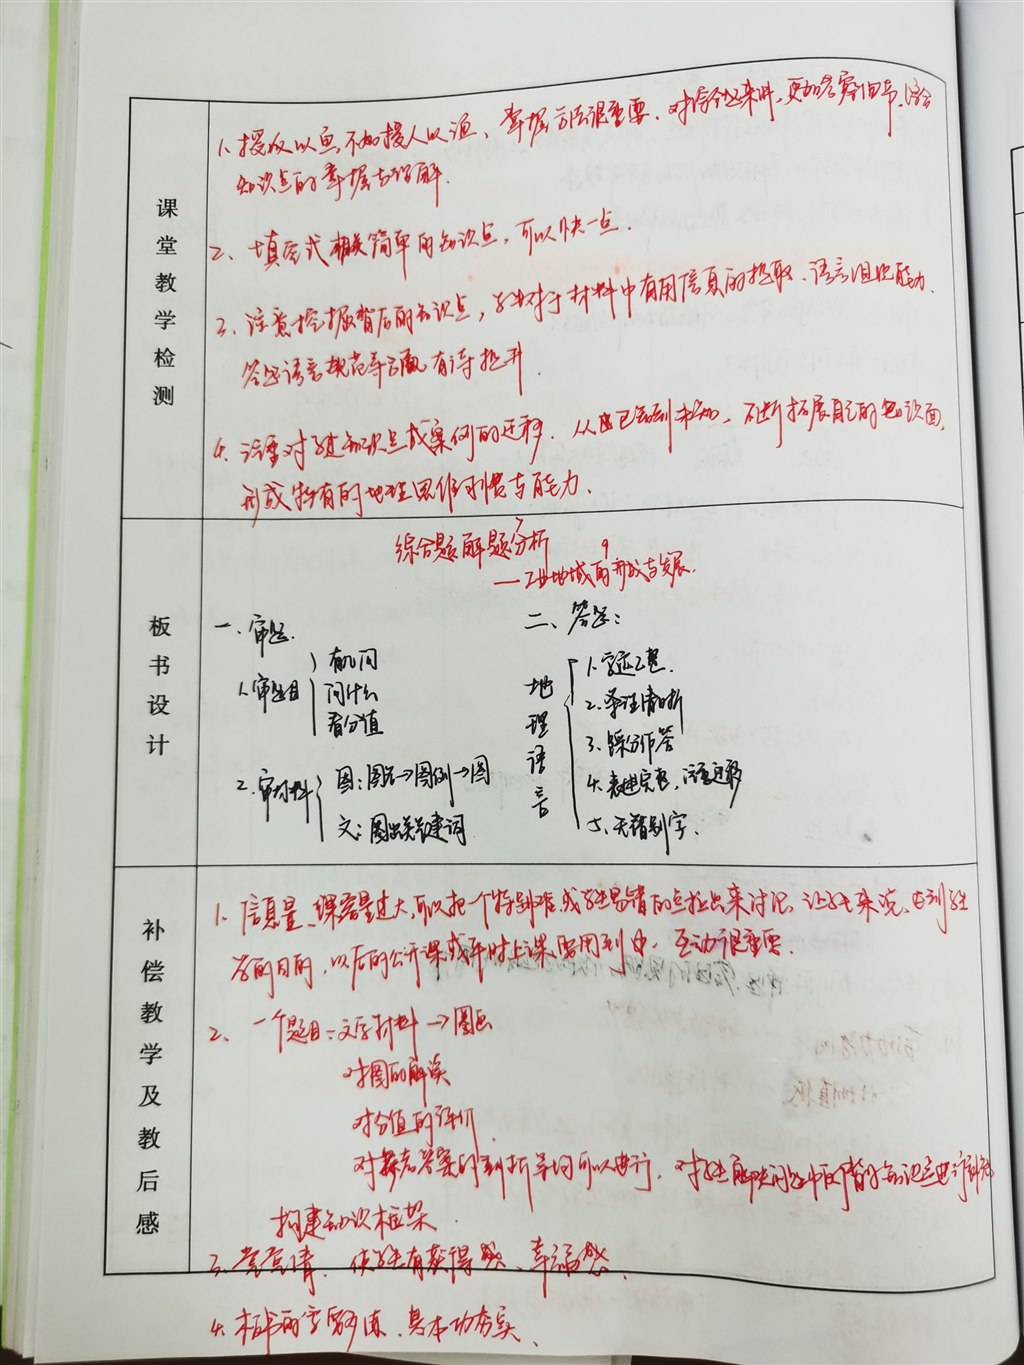 课堂教学检测
1. 授人以鱼,不如授人以渔、掌握方法很重要. 对综合题来讲,更加考察细节、综合
知识点的掌握与理解.
2、填空式 相关简单的知识点,可以快一点.
3、注意挖掘背后的知识点,学生对于材料中有用信息的提取、语言组织能力、
答题语言规范等方面,有待提升.
4. 注重对于知识点或案例的迁移. 从已知到未知、不断拓展自己的知识面,
形成特有的地理思维习惯与能力.
板书设计
综合题解题分析
—工业地域的形成与发展.
一、审题.
1.审题目
有几问
问什么
看分值
2.审材料
图:图名→图例→图
文:圈出关键词
二、答题:
地理语言
1.字迹工整.
2.条理清晰
3、踩分作答
4.表述完整,注意迁移
5、无错别字.
补偿教学及教后感
1. 信息量、课容量过大,可以把一个特别难或学生易错的点拉出来讨论,让学生来说,达到学生
答的目的,以后的公开课或平时上课,要用到中,互动很重要.
2、一个题目:文字材料→图画
对图的解读
对分值的评价.
对参考答案的剖析等均可以进行,对学生解决问题中所背的知识点进行
构建知识框架.
3. 使学生有获得感、幸福感.
4. 板书的字要多练、基本功夯实、